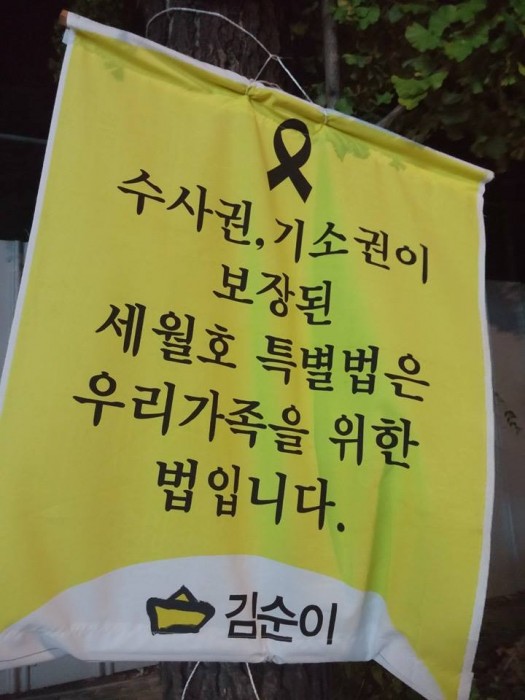 수사권, 기소권이
보장된
세월호 특별법은
우리가족을 위한
법입니다.
김순이